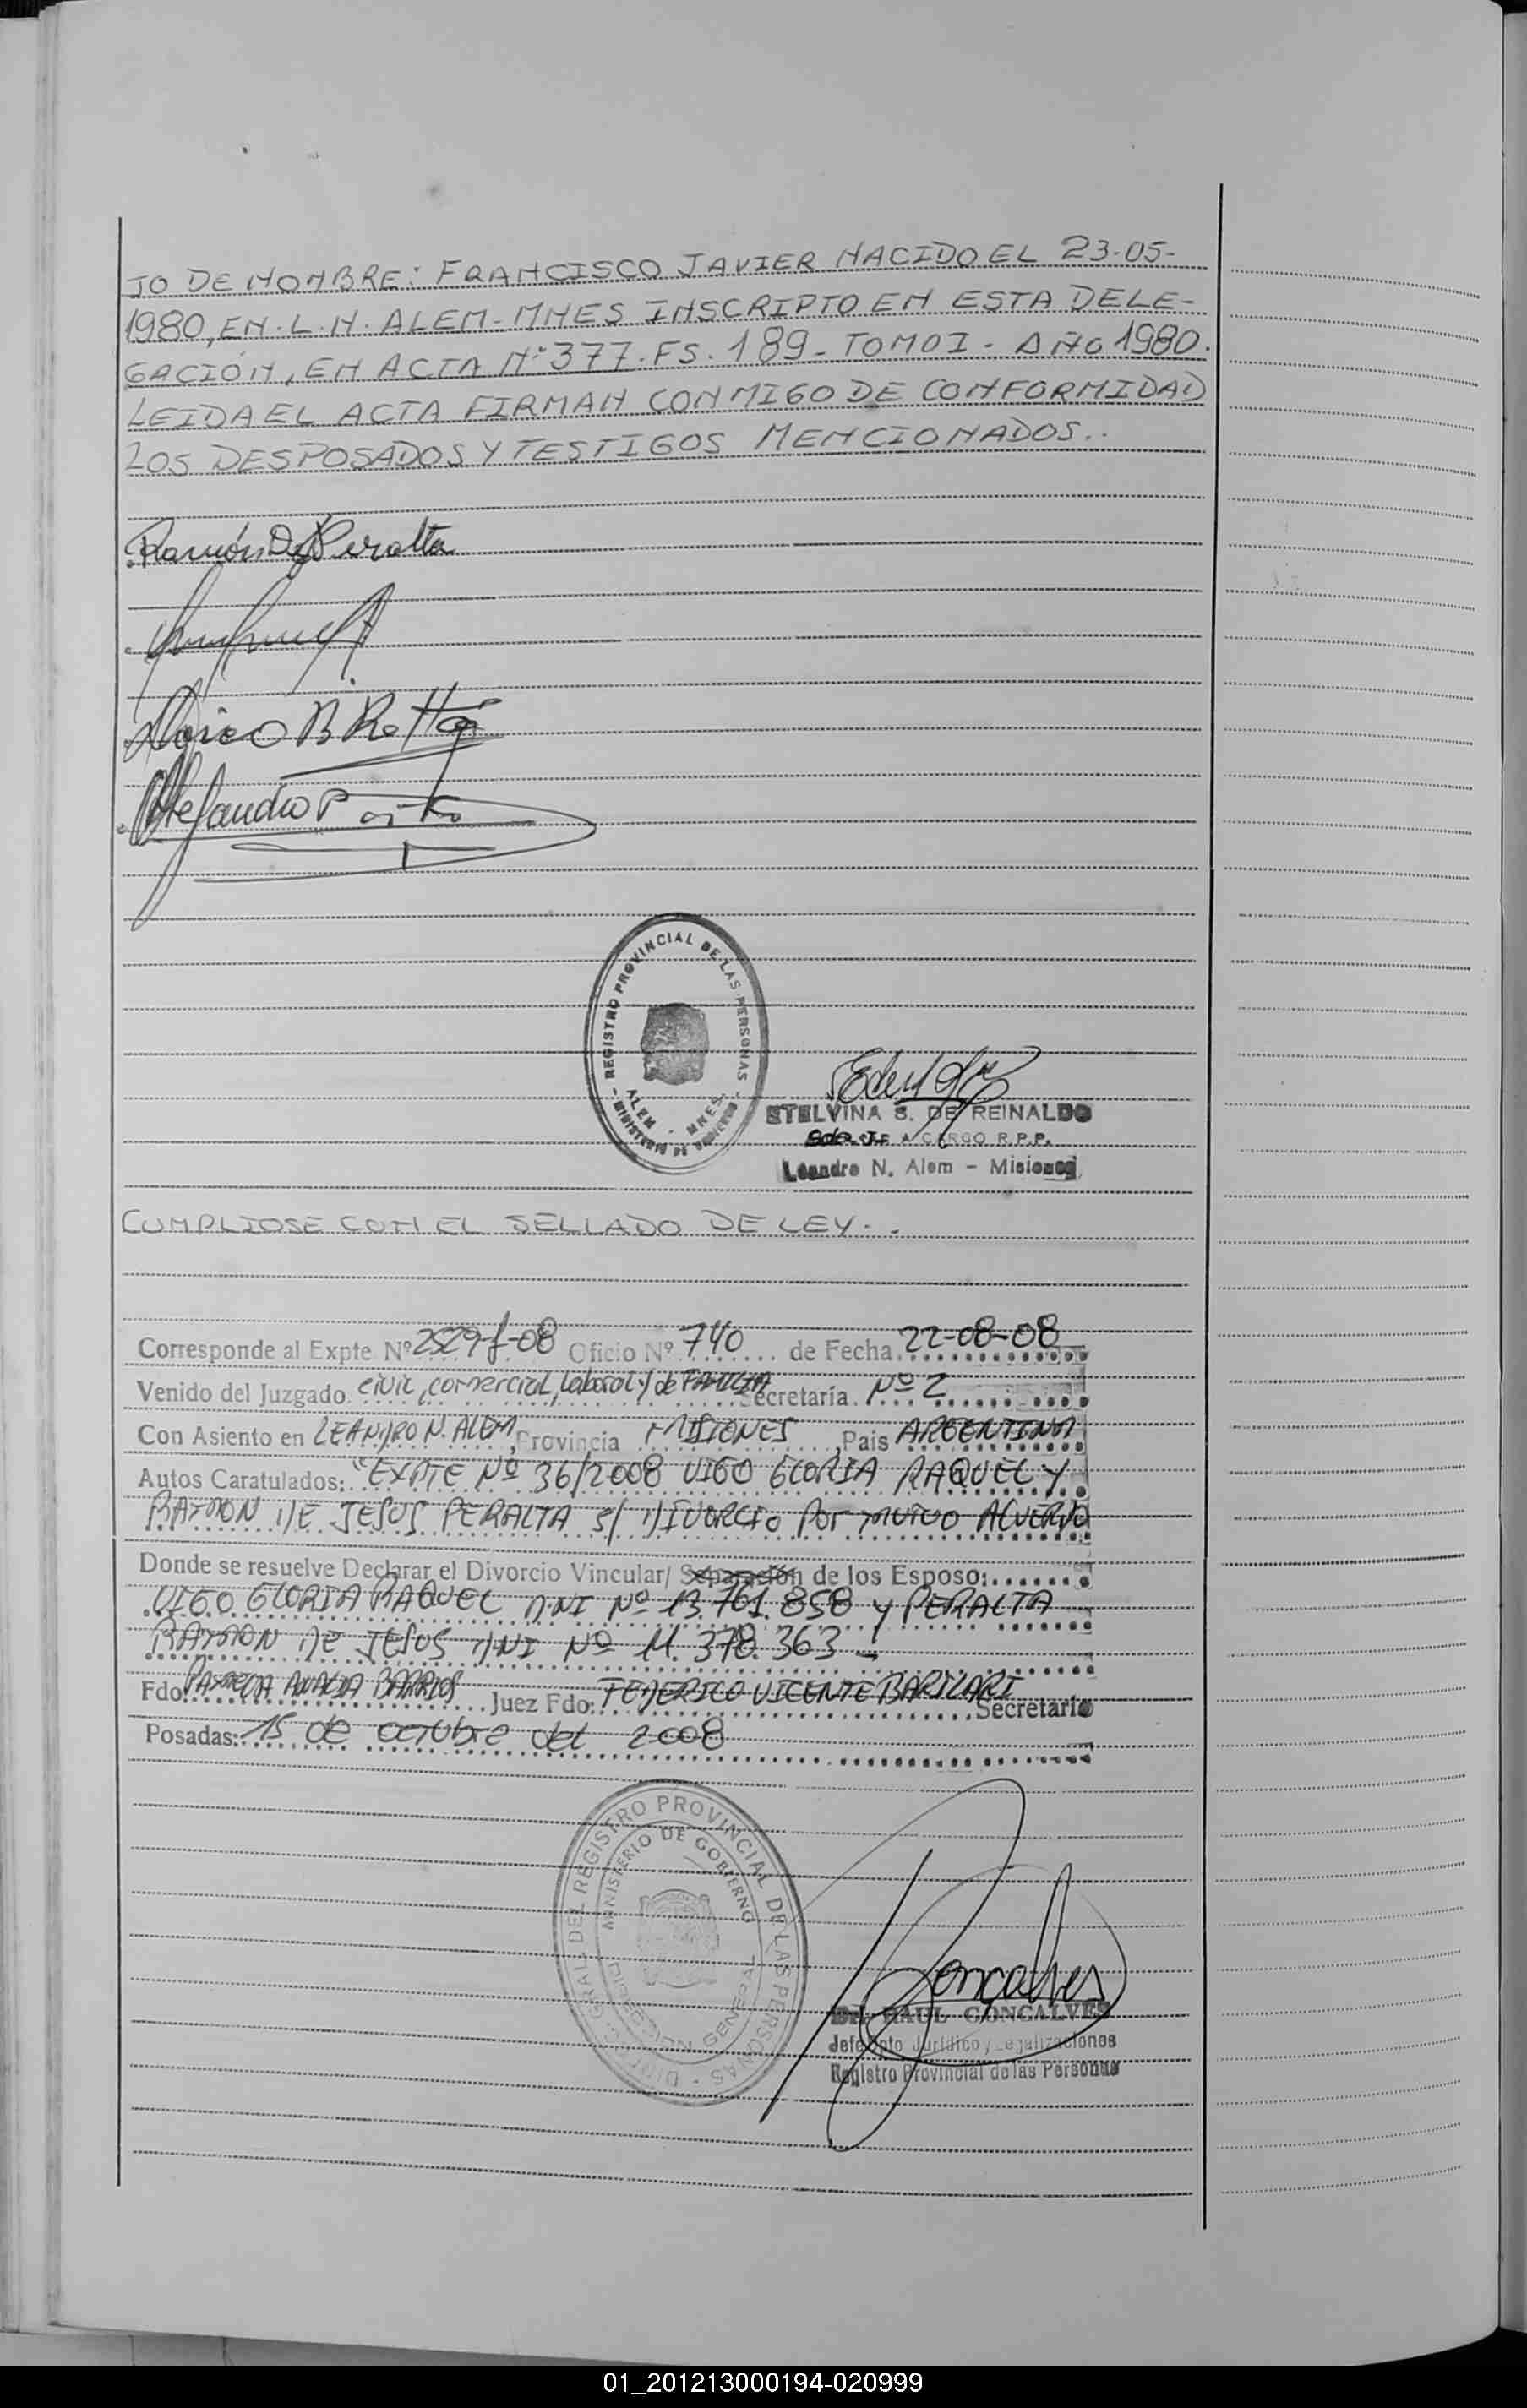 JO DE NOMBRE: FRANCISCO JAVIER NACIDO EL 23-05-
1980, EN. L. N. ALEM - MNES INSCRIPTO EN ESTA DELE-
GACIÓN, EN ACTA N° 377. FS. 189 - TOMO I - AÑO 1980.
LEIDA EL ACTA FIRMAN CONMIGO DE CONFORMIDAD
LOS DESPOSADOS Y TESTIGOS MENCIONADOS..
Ramón D J Peralta
Alejandro
REGISTRO PROVINCIAL DE LAS PERSONAS
ALEM - MNES.
MINISTERIO DE GOBIERNO
ETELVINA S. DE REINALDO
A CARGO R.P.P.
Leandro N. Alem - Misiones
CUMPLIOSE CON EL SELLADO DE LEY..
Corresponde al Expte Nº 2529-f-08 Oficio Nº 740 de Fecha 22-08-08
Venido del Juzgado civil, comercial, laboral y de FAMILIA Secretaría Nº 2
Con Asiento en LEANDRO N. ALEM, Provincia MISIONES, Pais ARGENTINA
Autos Caratulados: "EXPTE Nº 36/2008 VIGO GLORIA RAQUEL Y
RAMON DE JESUS PERALTA S/ DIVORCIO POR MUTUO ACUERDO
Donde se resuelve Declarar el Divorcio Vincular/ Separación de los Esposo:
VIGO GLORIA RAQUEL DNI Nº 13.761.858 Y PERALTA
RAMON DE JESUS DNI Nº 11.378.363 -
Fdo: BARRIOS Juez Fdo: FEDERICO VICENTE BARILARI Secretario
Posadas: 15 de octubre del 2008
DEL REGISTRO PROVINCIAL DE LAS PERSONAS
MINISTERIO DE GOBIERNO
GENERAL
Gonçalves
Dr. RAUL GONCALVES
Jefe Dpto Jurídico y Legalizaciones
Registro Provincial de las Personas
01_201213000194-020999